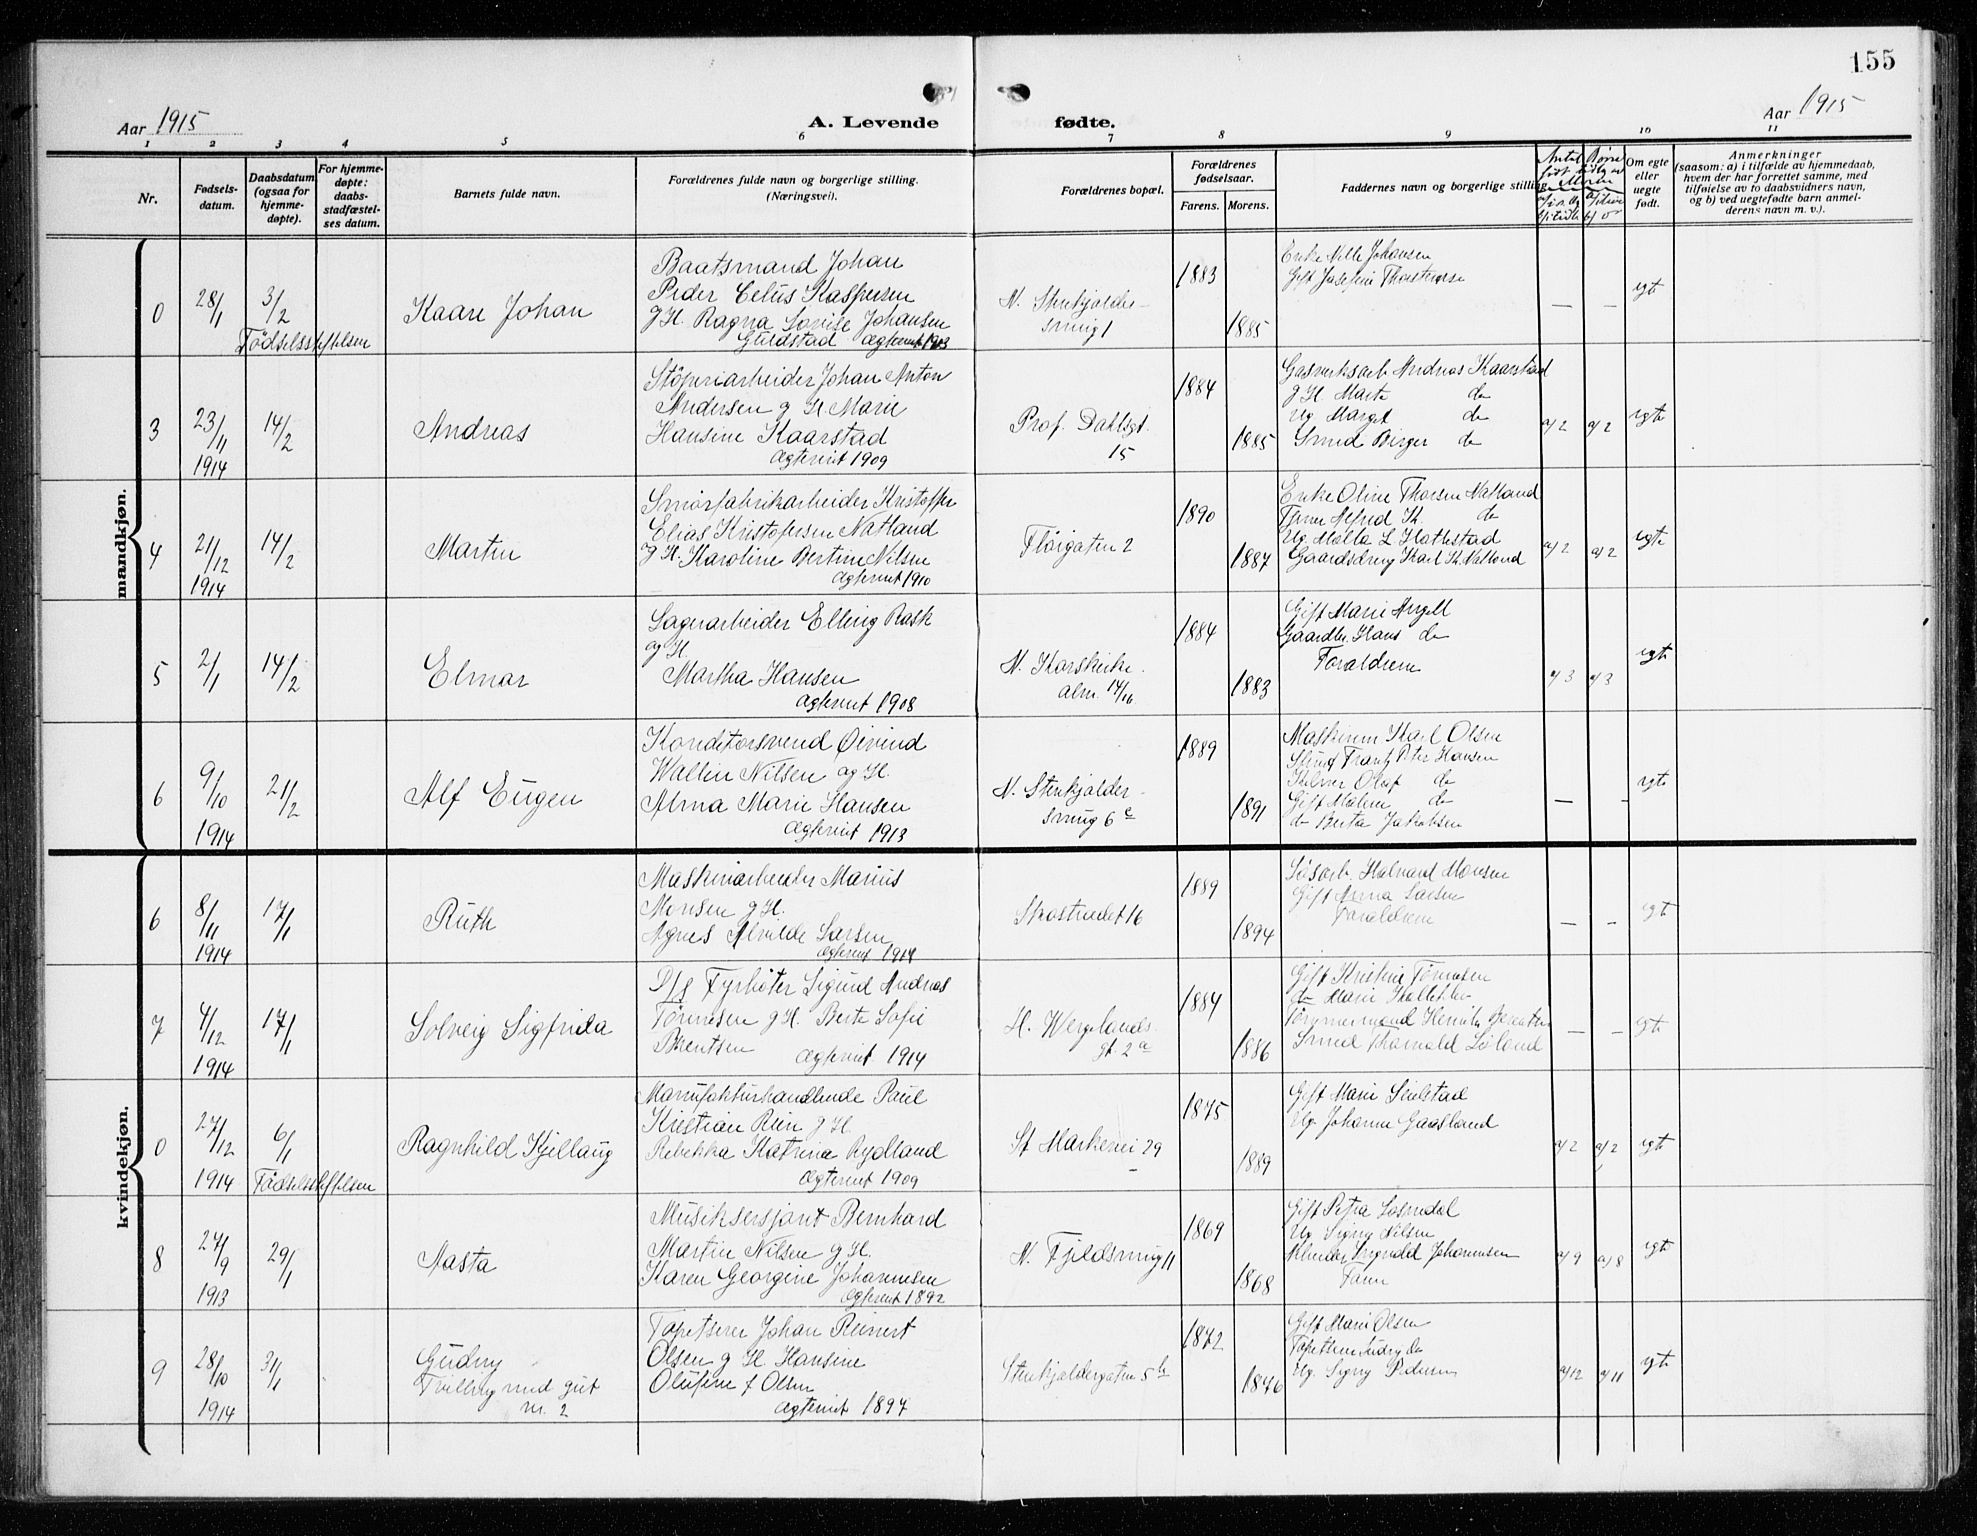 155
Aar 1915
A. Levende
fødte.
Aar 1915
1 2 3 4 5 6 7 8 9 10 11
Nr.
Fødsels-
datum.
Daabsdatum
(ogsaa for
hjemme-
døpte).
For hjemme-
døpte:
daabs-
stadfæstel-
ses datum.
Barnets fulde navn.
Forældrenes fulde navn og borgerlige stilling.
(Næringsvei).
Forældrenes bopæl.
Forældrenes
fødselsaar.
Farens. Morens.
Faddernes navn og borgerlige stilling
Antal Børn
født
Om egte
eller
uegte
født.
Anmerkninger
(saasom: a) i tilfælde av hjemmedaab,
hvem der har forrettet samme, med
tilføielse av to daabsvidners navn,
og b) ved uegtefødte barn anmel-
derens navn m. v.).
mandkjøn.
0
28/1
3/2
Fødselsstiftelsen
Kaare Johan
Baatsmand Johan
Peder Celius Kaspersen
g H. Ragna Lovise Johansen
Guldstad Ægteviet 1913
N. Stenkjelder-
smug 1
1883
1885
Enke Nille Johansen
Gift Josefine
— —
egte
3
23/11
1914
14/2
Andreas
Støperiarbeider Johan Anton
Andersen g H. Marie
Hansine Kaarstad
Ægteviet 1909
Prof. Dahlsgt.
15
1884
1885
Gasverksarb Andreas Kaarstad
g H Marte do
Ug Marget do
Smed Birger do
a/2 a/2
egte
4
21/12
1914
14/2
Martin
Smørfabrikarbeider Kristoffer
Elias Kristofersen Natland
g H. Karoline Bertine Nilsen
Ægteviet 1910
Fløigaten 2
1890
1887
Enke Oline Thorsen Natland
Alfred K. do
Ug Malla L
Gaardsdreng Karl K. Natland
a/2 a/2
egte
5
2/1
14/2
Elmar
Sagarbeider Elling Rask
og H.
Martha Hansen
Ægteviet 1908
N. Korskirke-
alm. 14/16
1884
1883
Gift Marie Angell
Gaardbr. Hans do
Forældrene
a/3 a/3
egte
6
9/10
1914
21/2
Alf Eugen
Konditorsvend Øivind
Wallin Nilsen og H.
Alma Marie Hansen
Ægteviet 1913
N. Stenkjelder-
smug 6 c
1889
1891
Maskinm Karl Olsen
Smed Frantz Peter Hansen
Olaf do
Gift Malene do
do Berta Jakobsen
— —
egte
kvindekjøn.
6
8/11
1914
17/1
Ruth
Maskinarbeider Marius
Monsen g H.
Agnes Alvilde Larsen
Ægteviet 1914
Skostrædet 16
1889
1894
Løsarb. Halvard Monsen
Gift Anna Larsen
Forældrene
— —
egte
7
4/12
1914
17/1
Solveig Sigfrida
D/s Fyrbøter Sigurd Andreas
Tønnesen g H. Berte Sofie
Berentsen Ægteviet 1914
H. Wergelands-
gt. 2 a
1884
1886
Gift Kristine Tønnesen
do Marie
Tømmermand Henrik Berentsen
Smed Thorvald Loland
— —
egte
0
27/12
1914
6/1
Fødselsstiftelsen
Ragnhild Kjellaug
Manufakturhandlende Paul
Kristian Rein g H.
Rebekka Katrina Rydland
Ægteviet 1909
St Markevei 29
1875
1889
Gift Marie
Ug Johanna Gaasland
a/2 a/2
egte
8
27/9
1913
29/1
Aasta
Musiksersjant Bernhard
Martin Nilsen g H.
Karen Georgine Johannesen
Ægteviet 1892
N. Fjeldsmug 11
1869
1868
Gift Petra
Ug Signy Nilsen
Johannesen
Faren
a/9 a/8
egte
9
28/10
1914
3/1
Gudny
Tvilling med gut
nr. 2
Tapetserer Johan Reinert
Olsen g H. Hansine
Olufine f Olsen
Ægteviet 1897
Stenkjeldergaten 5 b
1872
1876
Gift Marie Olsen
Ug Signy Pedersen
a/12 a/11
egte